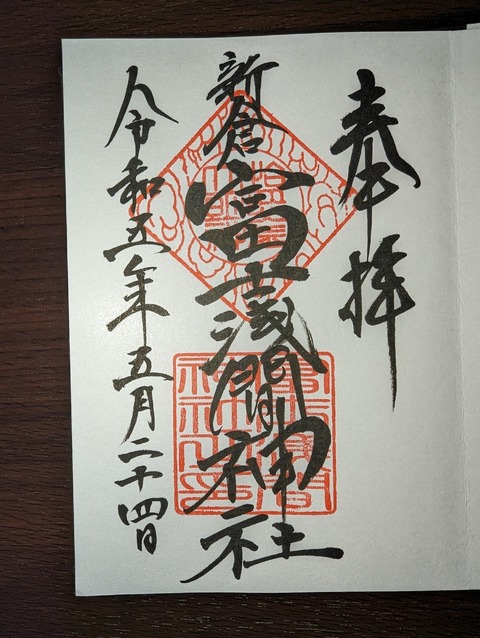 奉拝
新倉富士浅間神社
令和五年五月二十四日